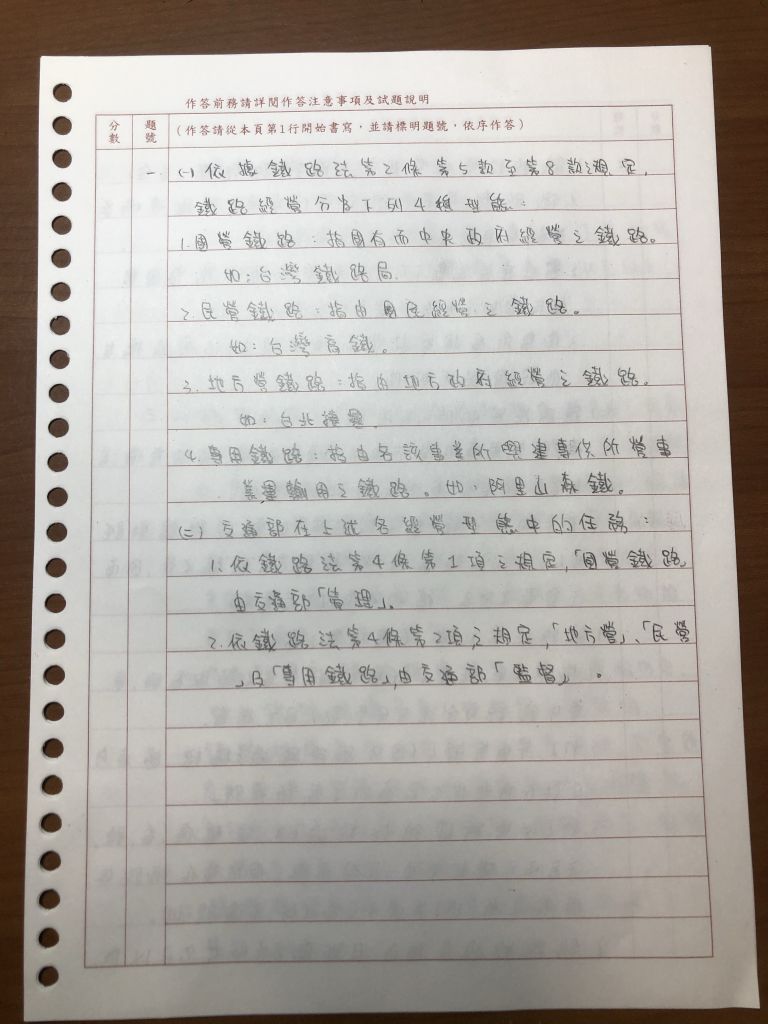 作答前務請詳閱作答注意事項及試題說明
分數
題號
(作答請從本頁第1行開始書寫,並請標明題號,依序作答)
一 (一)依據鐵路法第2條第5款至第8款之規定,
鐵路經營分為下列4種型態:
1.國營鐵路:指國有而中央政府經營之鐵路。
如:台灣鐵路局.
2.民營鐵路:指由國民經營之鐵路。
如:台灣高鐵。
3.地方營鐵路:指由地方政府經營之鐵路。
如:台北捷運.
4.專用鐵路:指由各該事業所興建專供所營事
業運輸用之鐵路。如:阿里山森鐵。
(二)交通部在上述各經營型態中的任務:
1.依鐵路法第4條第1項之規定,「國營鐵路」
由交通部「管理」。
2.依鐵路法第4條第2項之規定,「地方營」、「民營
」及「專用鐵路」,由交通部「監督」。